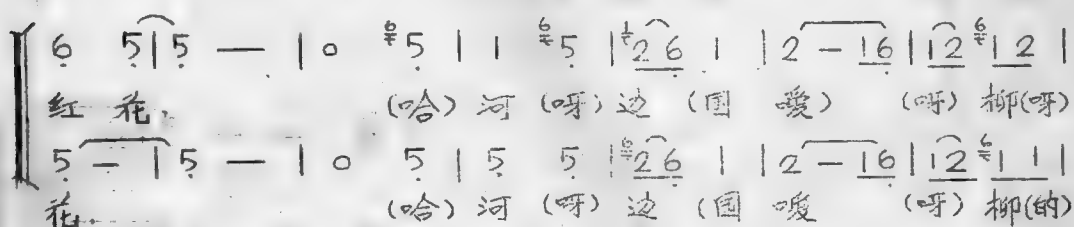 6 5 | 5 — | 0 6 5 | 1 6 5 | 1 2 6 1 | 2 — 1 6 | 1 2 6 1 2 |
红 花, (哈) 河 (呀) 边 (国 嗳) (呀) 柳(呀)
5 — | 5 — | 0 5 | 5 5 | 6 2 6 1 | 2 — 1 6 | 1 2 6 1 1 |
花. (哈) 河 (呀) 边 (国 嗳 (呀) 柳(的)